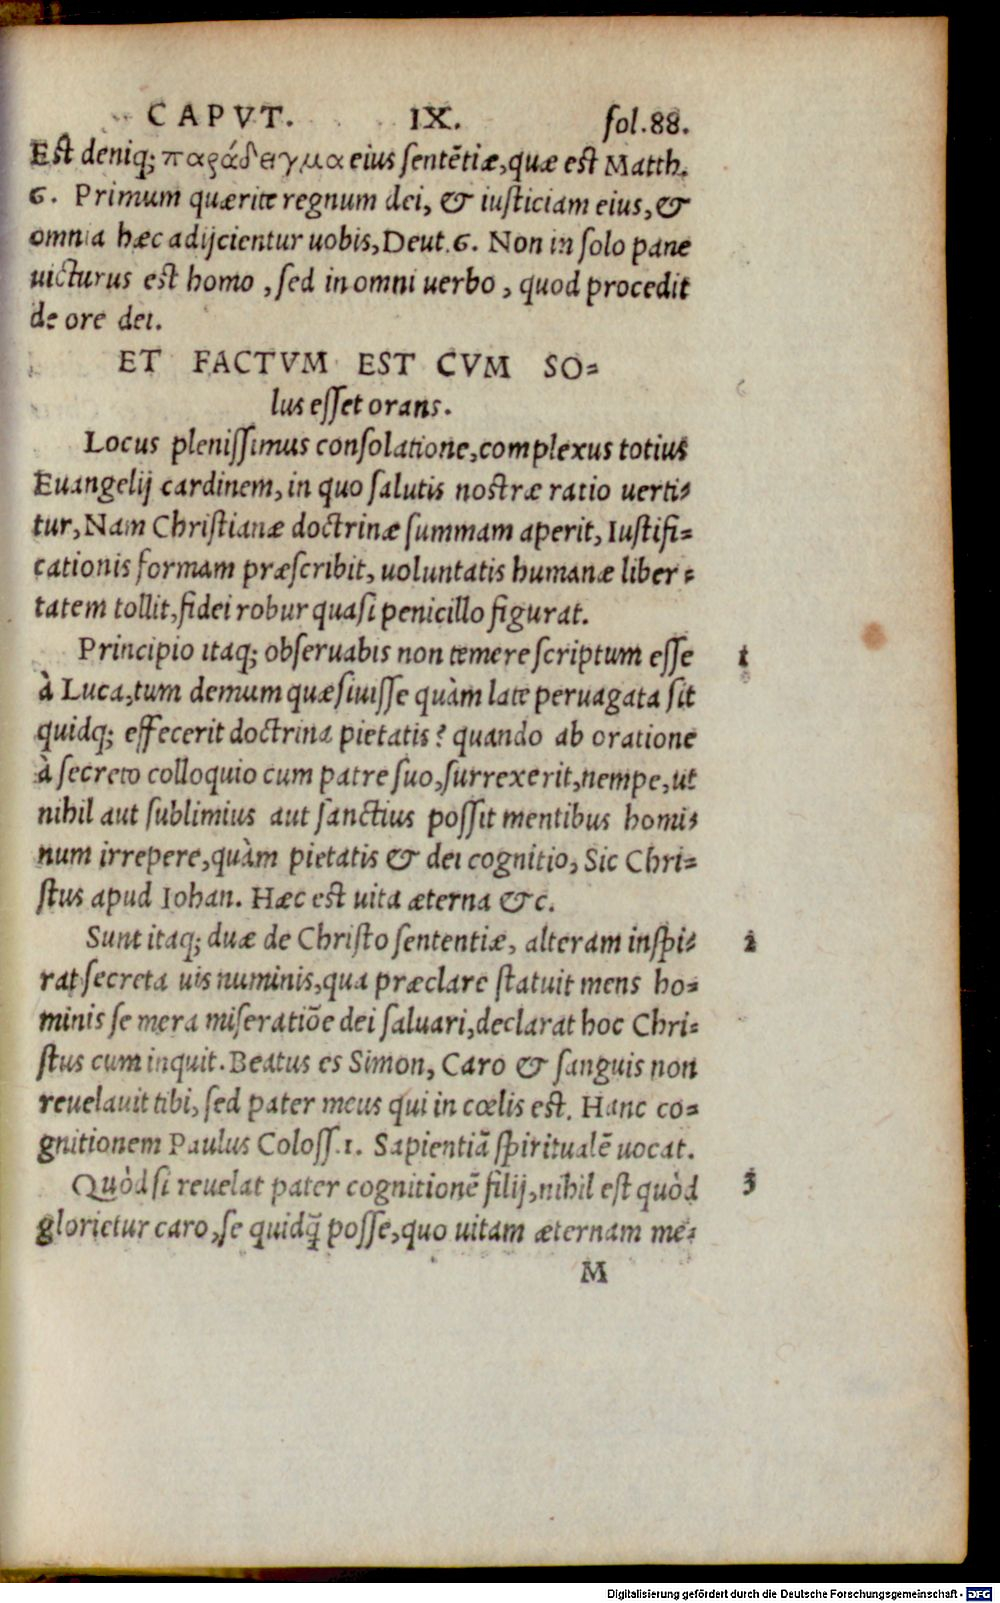 CAPVT. IX. fol.88.
Est deniq; παράδειγμα eius sentẽtiæ, quæ est Matth.
6. Primum quærite regnum dei, & iusticiam eius, &
omnia hæc adijcientur uobis, Deut. 6. Non in solo pane
uicturus est homo, sed in omni uerbo, quod procedit
de ore dei.
ET FACTVM EST CVM SO=
lus esset orans.
Locus plenissimus consolatione, complexus totius
Euangelij cardinem, in quo salutis nostræ ratio uerti=
tur, Nam Christianæ doctrinæ summam aperit, Iustifi=
cationis formam præscribit, uoluntatis humanæ liber=
tatem tollit, fidei robur quasi penicillo figurat.
Principio itaq; obseruabis non temere scriptum esse 1
à Luca, tum demum quæsiuisse quàm late peruagata sit
quidq; effecerit doctrina pietatis? quando ab oratione
à secreto colloquio cum patre suo, surrexerit, nempe, ut
nihil aut sublimius aut sanctius possit mentibus homi=
num irrepere, quàm pietatis & dei cognitio, Sic Chri=
stus apud Iohan. Hæc est uita æterna &c.
Sunt itaq; duæ de Christo sententiæ, alteram inspi= 2
rat secreta uis numinis, qua præclare statuit mens ho=
minis se mera miseratiõe dei saluari, declarat hoc Chri=
stus cum inquit. Beatus es Simon, Caro & sanguis non
reuelauit tibi, sed pater meus qui in cœlis est. Hanc co=
gnitionem Paulus Coloss.1. Sapientiã spiritualẽ uocat.
Quòd si reuelat pater cognitionẽ filij, nihil est quòd 3
glorietur caro, se quidq̃ posse, quo uitam æternam me=
M
Digitalisierung gefördert durch die Deutsche Forschungsgemeinschaft - DFG